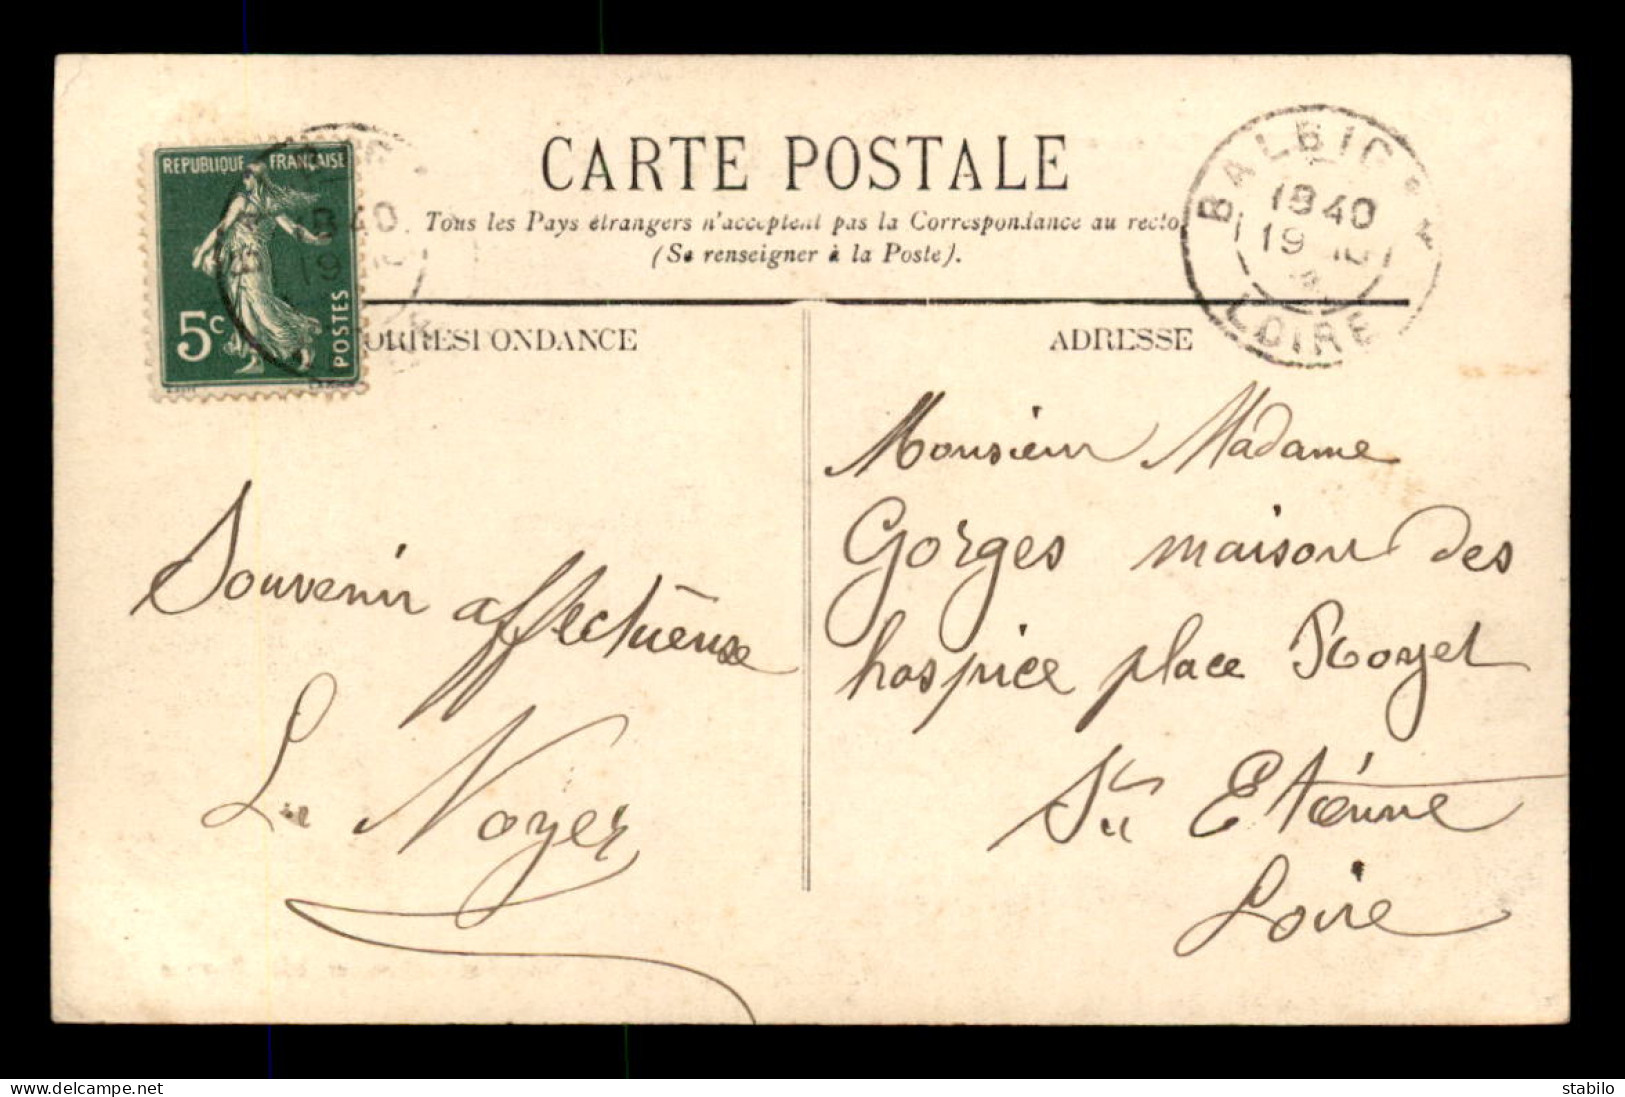 CARTE POSTALE
Tous les Pays étrangers n'acceptent pas la Correspondance au recto
(Se renseigner à la Poste).
REPUBLIQUE FRANÇAISE
5c
POSTES
ORRESPONDANCE
ADRESSE
LOIRE
18 40
19
Souvenir affectueuse
Le Noyer
Monsieur Madame
Gorges maison des
hospice place Royet
St Etiénne
Loire
delcampe.net
stabilo